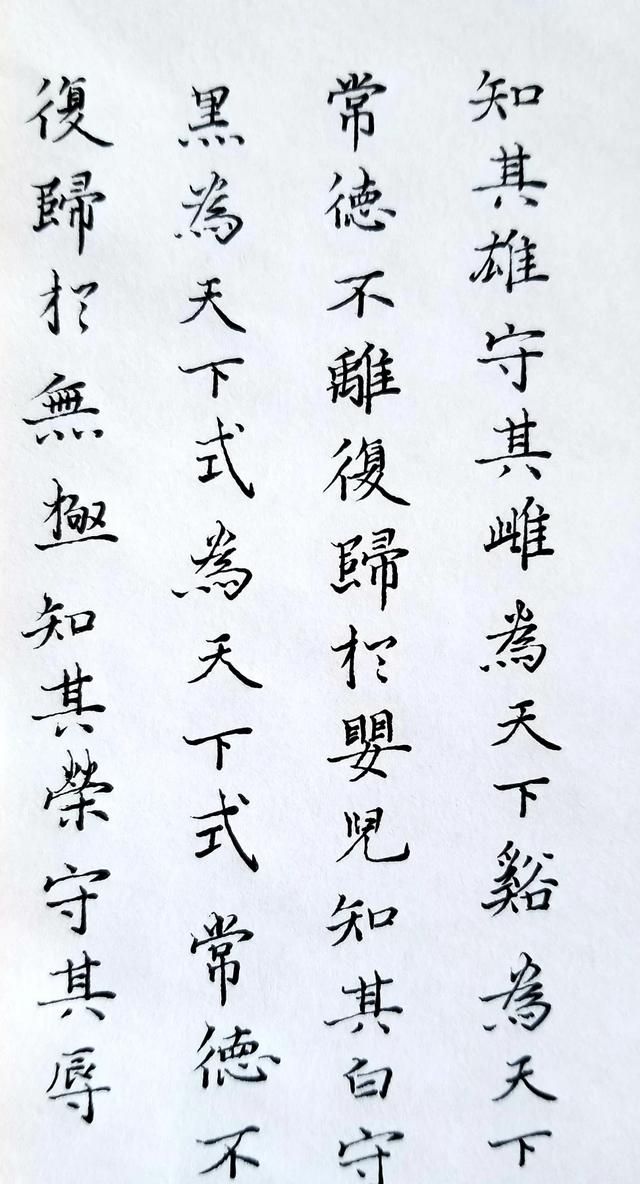 知其雄守其雌為天下谿為天下
常德不離復歸於嬰兒知其白守
黑為天下式為天下式常德不
復歸於無極知其榮守其辱